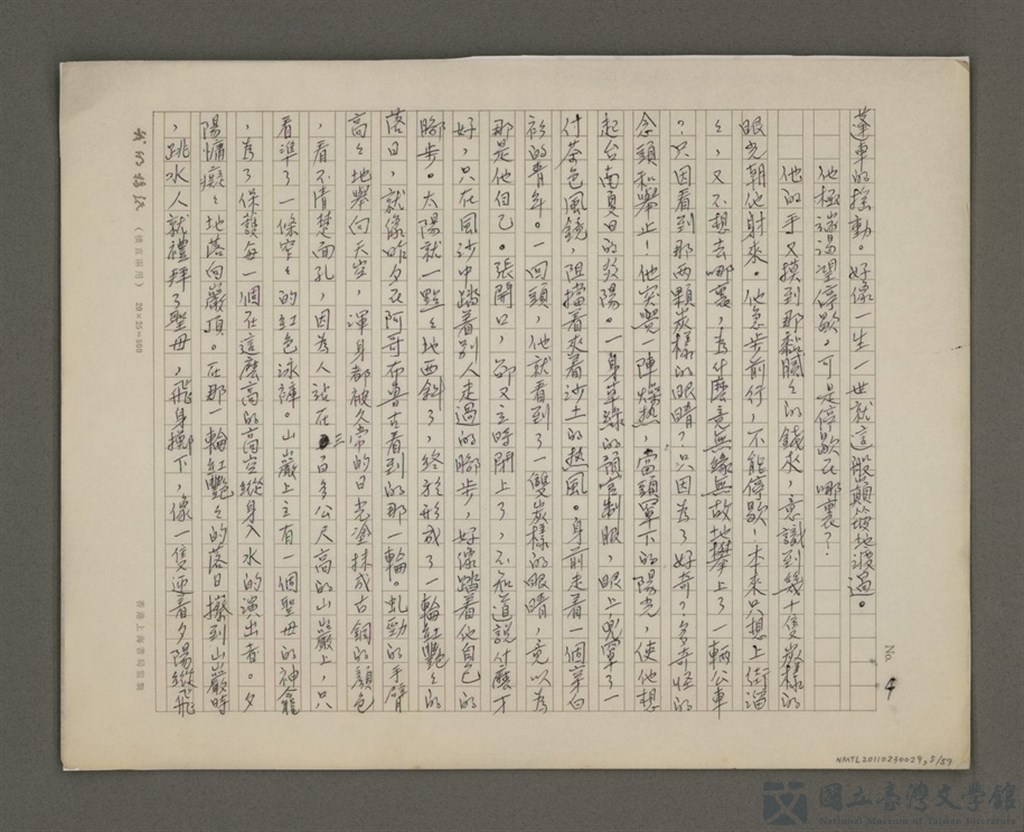 No. 4
篷車的搖動。好像一生一世就這般顛簸地渡過。
他極端渴望停歇，可是停歇在哪裏？
他的手又摸到那黏膩々的錢來，意識到幾十隻炭樣的
眼光朝他射來。他急步前行，不能停歇！本來只想上街溜
々，又不想去哪裏，為什麼竟無緣無故地攀上了一輛公車
？只因看到那兩顆炭樣的眼睛？只因為了好奇？多奇怪的
念頭和舉止！他突覺一陣燥熱，當頭罩下的陽光，使他想
起台南夏日的炎陽。一身草綠的預官制服，眼上兜罩了一
付茶色風鏡，阻擋着夾着沙土的熱風。身前走着一個穿白
衫的青年。一回頭，他就看到了一雙炭樣的眼睛，竟以為
那是他自己。張開口，卻又立時閉上了，不知道說什麼才
好，只在風沙中踏着別人走過的腳步，好像踏着他自己的
腳步。太陽就一點々地西斜了，終於形成了一輪紅艷々的
落日，就像昨夕在阿哥布魯古看到的那一輪。虬勁的手臂
高々地舉向天空，渾身都被久常的日光塗抹成古銅的顏色
，看不清楚面孔，因為人站在三百多公尺高的山巖上，只
看準了一條窄々的紅色泳褲。山巖上立有一個聖母的神龕
，為了保護每一個在這麼高的高空縱身入水的演出者。夕
陽慵癡々地落向巖頂。在那一輪紅艷々的落日擦到山巖時
，跳水人就禮拜了聖母，飛身擲下，像一隻迎着夕陽縱飛
我的稿紙（橫直兩用） 20×25＝500
香港上海書局監製
NMTL20110230029,5/57
國立臺灣文學館
National Museum of Taiwan Literature